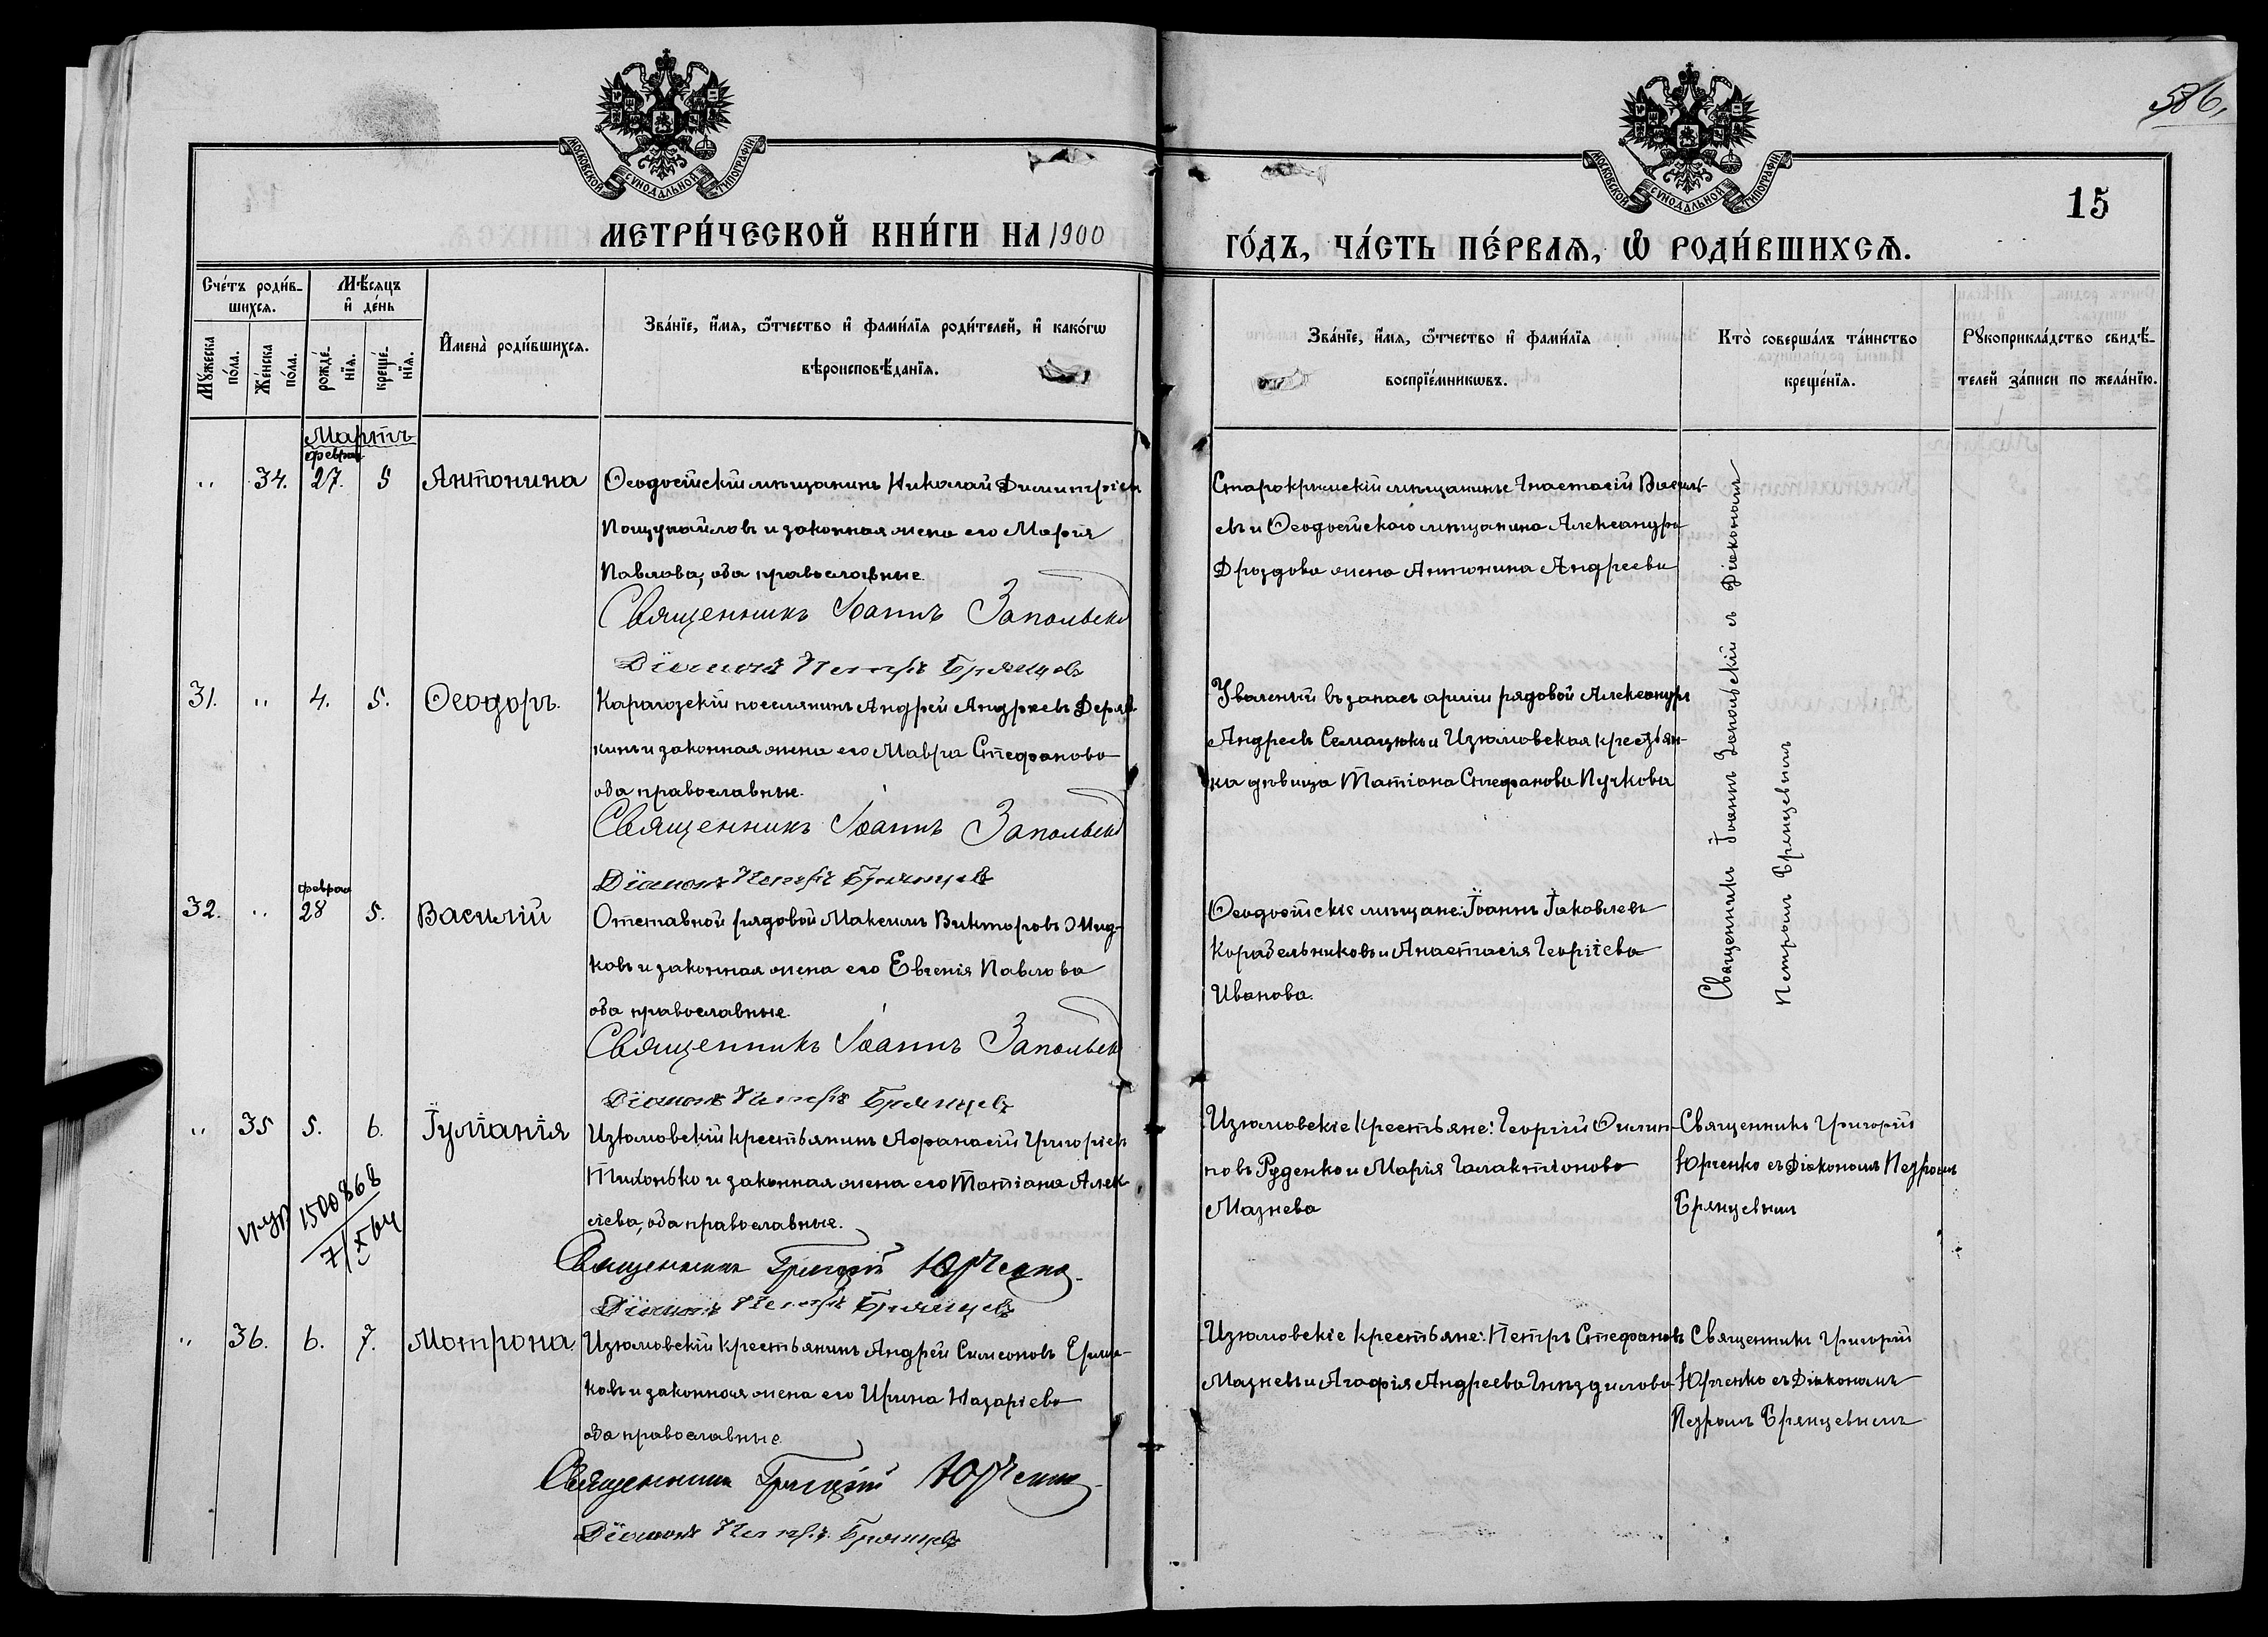 586,
МОСКОВСКОЙ СУНОДАЛЬНОЙ ТИПОГРАФІИ
МОСКОВСКОЙ СУНОДАЛЬНОЙ ТИПОГРАФІИ
15
МЕТРИ́ЧЕСКОЙ КНИ́ГИ НА 1900
ГО́ДЪ, ЧА́СТЬ ПЕ́РВАѦ, Ѡ҆ РОДИ́ВШИХСѦ.
Сче́тъ роди́в-
шихсѧ.
Мѣ́сяцъ
и҆ де́нь
Мꙋ́жеска
по́ла.
Же́нска
по́ла.
рожде́-
нїѧ.
креще́-
нїѧ.
И҆мена̀ роди́вшихсѧ.
Зва́нїе, и҆́мѧ, ѻ҆́тчество и҆ фами́лїѧ роди́телей, и҆ како́гѡ
вѣроисповѣ́данїѧ.
Зва́нїе, и҆́мѧ, ѻ҆́тчество и҆ фами́лїѧ
воспрїе́мникѡвъ.
Кто̀ соверша́лъ та́инство
креще́нїѧ.
Рꙋкоприкла́дство свидѣ́-
телей за́писи по жела́нїю.
Мартъ
феврал
„ 34. 27. 5 Антонина
Ѳеодосійскій мѣщанинъ Николай Димитріев
Пощукайловъ и законная жена его Марія
Павлова, оба православные.
Священникъ Іоаннъ Запольскі
Діаконъ Петръ Брянцевъ
Старокрымскій мѣщанинъ Анастасій Василь-
евъ и Ѳеодосійскаго мѣщанина Александра
Дроздова жена Антонина Андреева
31. „ 4. 5. Ѳеодоръ.
Карагозскій поселянинъ Андрей Андреевъ Деряв
кинъ и законная жена его Мавра Стефанова
оба православные.
Священникъ Іоаннъ Запольскі
Діаконъ Петръ Брянцевъ
Уволеный въ запасъ арміи рядовой Александръ
Андреевъ Семацюкъ и Изюмовская крестьян-
ка дѣвица Татіана Стефанова Пучкова
феврал
32. „ 28 5. Василій
Отставной рядовой Максимъ Викторовъ
ковъ и законная жена его Евгенія Павлова
оба православные.
Священникъ Іоаннъ Запольскі
Діаконъ Петръ Брянцевъ
Ѳеодосійскіе мѣщане: Іоаннъ Іаковлевъ
Корабельниковъ и Анастасія Георгіева
Иванова.
Священникъ Іоаннъ Запольскій съ Діакономъ
Петромъ Брянцевымъ
„ 35 5. 6. Іуліанія
Изюмовскій крестьянинъ Аѳанасій Григоріев
Тихонько и законная жена его Татіана Алек-
сіева, оба православные.
Священникъ Григорій Юрченко
Діаконъ Петръ Брянцевъ
1500868
7/X 64
Изюмовскіе крестьяне: Георгій Филип-
повъ Руденко и Марія Галактіонова
Мазнева
Священникъ Григорій
Юрченко съ Діакономъ Петромъ
Брянцевымъ
„ 36. 6. 7. Матрона
Изюмовскій крестьянинъ Андрей Симеоновъ Ерма-
ковъ и законная жена его Ирина Назаріева
оба православные
Священникъ Григорій Юрченко
Діаконъ Петръ Брянцевъ
Изюмовскіе крестьяне: Петръ Стефановъ
Мазневъ и Агафія Андреева Гнѣздилова
Священникъ Григорій
Юрченко съ Діакономъ
Петромъ Брянцевымъ